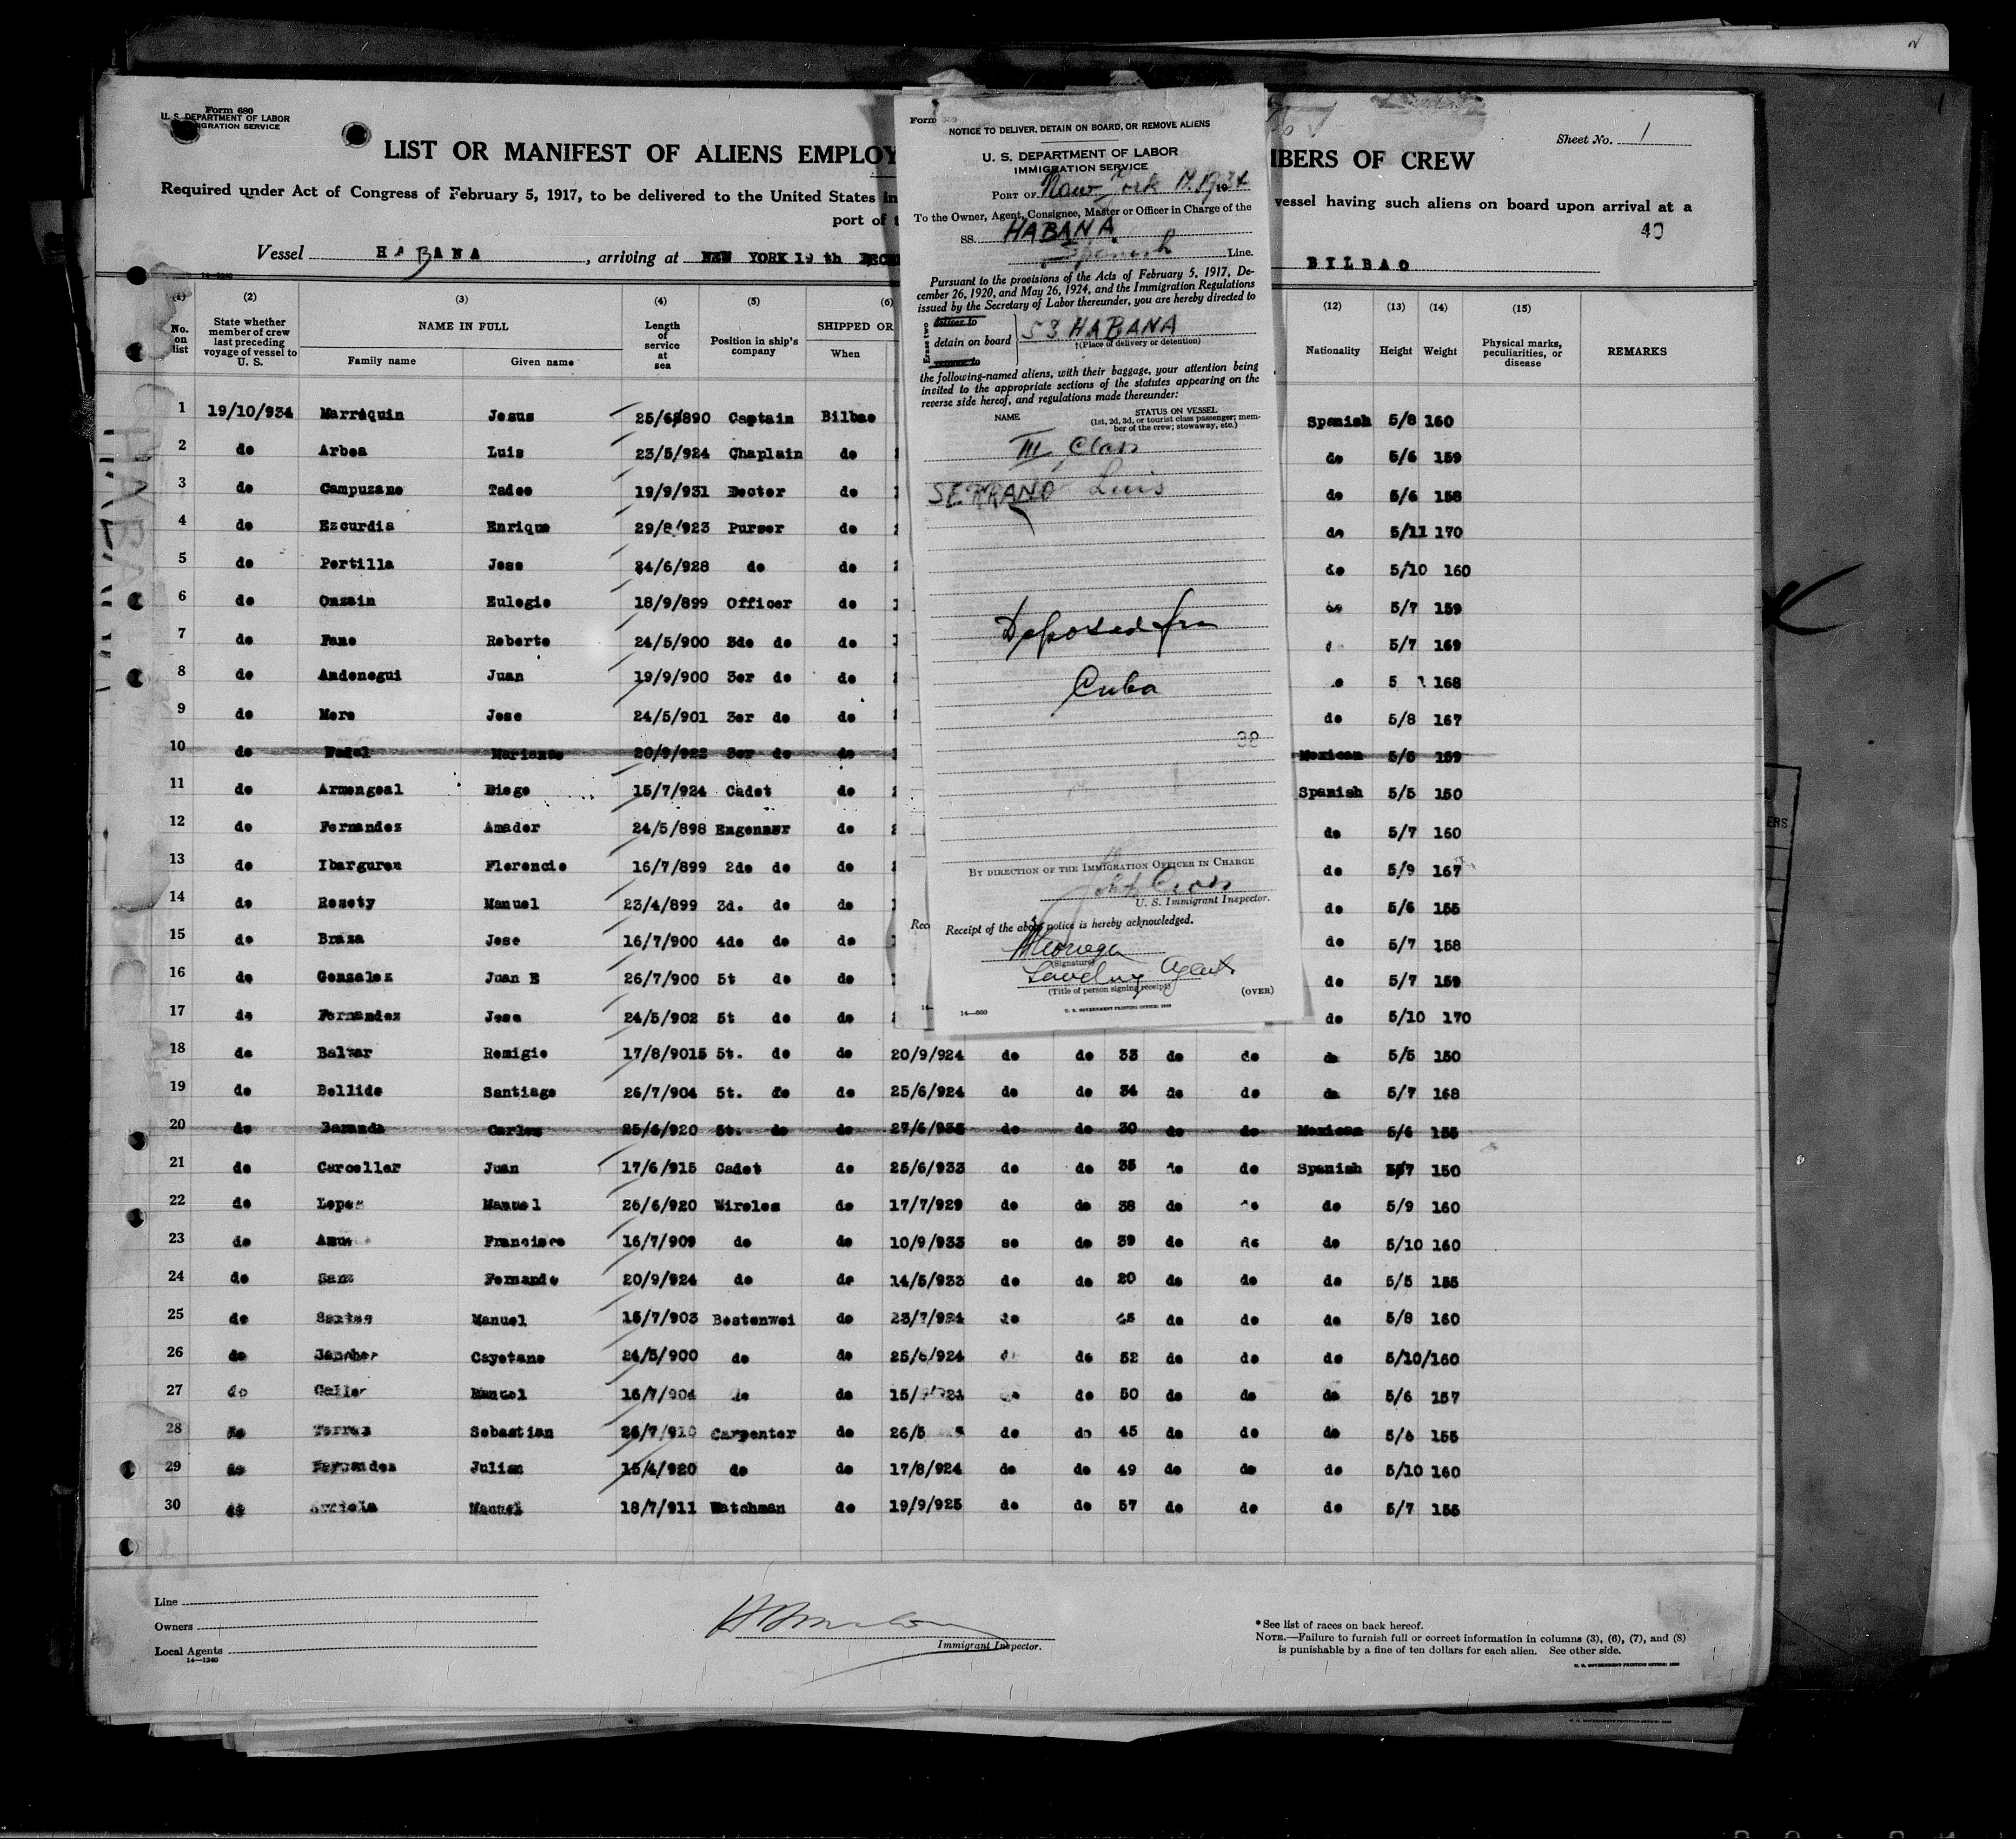 Form 680
U. S. DEPARTMENT OF LABOR
IMMIGRATION SERVICE
Sheet No. 1
LIST OR MANIFEST OF ALIENS EMPLOY
MBERS OF CREW
Required under Act of Congress of February 5, 1917, to be delivered to the United States in
vessel having such aliens on board upon arrival at a
port of
40
Vessel HABANA, arriving at NEW YORK 19 th
BILBAO
14-1240
(2) (3) (4) (5) (6) (12) (13) (14) (15)
No. on list State whether member of crew last preceding voyage of vessel to U. S. NAME IN FULL Length of service at sea Position in ship's company SHIPPED OR Nationality Height Weight Physical marks, peculiarities, or disease REMARKS
Family name Given name When
1 19/10/934 Marrequin Jesus Captain Bilbao Spanish 5/8 160
2 do Arbea Luis 23/5/924 Chaplain do do 5/6 159
3 do Campuzano Tadeo 19/9/931 Doctor do do 5/6 158
4 do Ezcurdia Enrique 29/8/923 Purser do do 5/11 170
5 do Portilla Jose 24/6/928 do do do 5/10 160
6 do Onzain Eulogio 18/9/899 Officer do do 5/7 159
7 do Fano Roberto 24/5/900 3do do do 5/7 169
8 do Andonegui Juan 19/9/900 3er do do 5 168
9 do More Jose 24/5/901 3er do do do 5/8 167
10 do 20/9/922 3er do do Mexican 159
11 do Armengoal Diego 15/7/924 Cadet do Spanish 5/5 150
12 do Fernandez Amador 24/5/898 Engenner do do 5/7 160
13 do Ibarguren Florencio 16/7/899 2do do do do 5/9 167
14 do Rosety Manuel 23/4/899 3d. do do do 5/6 155
15 do Braza Jose 16/7/900 4do do do do 5/7 158
16 do Gonzalez Juan E 26/7/900 5t do do do 5/7 159
17 do Fernandez Jose 24/5/902 5t do do do 5/10 170
18 do Baltar Remigio 17/8/9015 5t. do do 20/9/924 do do 33 do do do 5/5 150
19 do Bellido Santiago 26/7/904 5t. do do 25/6/924 do do 34 do do do 5/7 168
20 do Baranda Carlos 25/6/920 5t. do do 27/6/933 do do 30 do do Mexican 5/6 155
21 do Carceller Juan 17/6/915 Cadet do 25/6/933 do do 35 do do Spanish 5/7 150
22 do Lopez Manuel 26/6/920 Wireles do 17/7/929 do do 38 do do do 5/9 160
23 do Francisco 16/7/909 do do 10/9/933 se do 39 do do do 5/10 160
24 do Sanz Fernando 20/9/924 do do 14/5/933 do do 20 do do do 5/5 155
25 do Santos Manuel 15/7/903 Bostonwei do 23/7/924 do 45 do do do 5/8 160
26 do Cayetano 24/5/900 do do 25/6/924 do 52 do do do 5/10/160
27 do Manuel 16/7/904 do do do 50 do do do 5/6 157
28 do Torres Sebastian 26/7/910 Carpenter do 26/5 do do 45 do do do 5/6 155
29 do Fernandez Julian 15/4/920 do do 17/8/924 do do 49 do do do 5/10 160
30 do Manuel 18/7/911 Watchman do 19/9/925 do do 57 do do do 5/7 155
Line
Owners
Local Agents
14-1240
Immigrant Inspector.
* See list of races on back hereof.
NOTE.—Failure to furnish full or correct information in columns (3), (6), (7), and (8)
is punishable by a fine of ten dollars for each alien. See other side.
U. S. GOVERNMENT PRINTING OFFICE
Form
NOTICE TO DELIVER, DETAIN ON BOARD, OR REMOVE ALIENS
U. S. DEPARTMENT OF LABOR
IMMIGRATION SERVICE
PORT OF New York 19 34
To the Owner, Agent, Consignee, Master or Officer in Charge of the
SS. HABANA
Spanish Line.
Pursuant to the provisions of the Acts of February 5, 1917, De-
cember 26, 1920, and May 26, 1924, and the Immigration Regulations
issued by the Secretary of Labor thereunder, you are hereby directed to
Erase two
deliver to
detain on board SS HABANA
†(Place of delivery or detention)
remove to
the following-named aliens, with their baggage, your attention being
invited to the appropriate sections of the statutes appearing on the
reverse side hereof, and regulations made thereunder:
NAME STATUS ON VESSEL
(1st, 2d, 3d, or tourist class passenger; mem-
ber of the crew; stowaway, etc.)
III Class
SERRANO Luis
Deposed from
Cuba
38
BY DIRECTION OF THE IMMIGRATION OFFICER IN CHARGE
U. S. Immigrant Inspector.
Rec
Receipt of the above notice is hereby acknowledged.
(Signature)
Landing Agent
(Title of person signing receipt)
(OVER)
14—660
U. S. GOVERNMENT PRINTING OFFICE